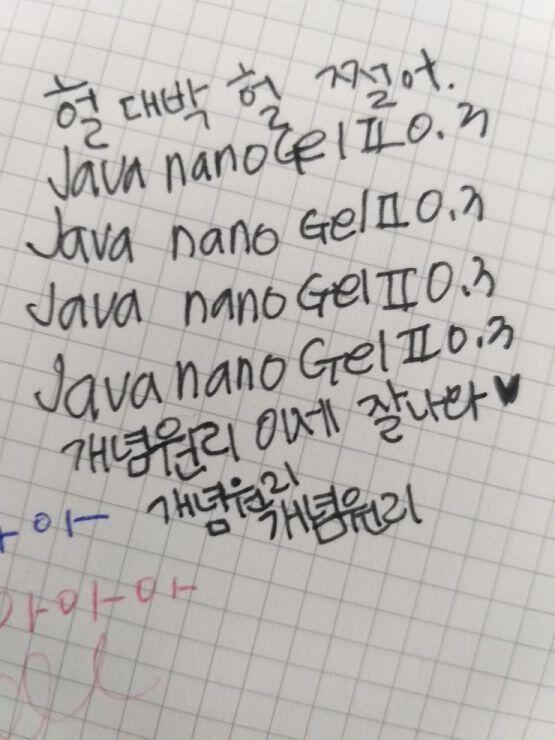 헐 대박 헐 쩔어.
Java nano Gel II 0.3
Java nano Gel II 0.3
Java nano Gel II 0.3
Java nano Gel II 0.3
개념원리 잘나라♥
개념원리
개념원리
아
아아아